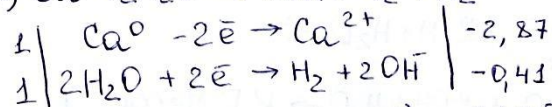 1 | Ca⁰ - 2ē → Ca²⁺ | -2,87
1 | 2H₂O + 2ē → H₂ + 2OH⁻ | -0,41